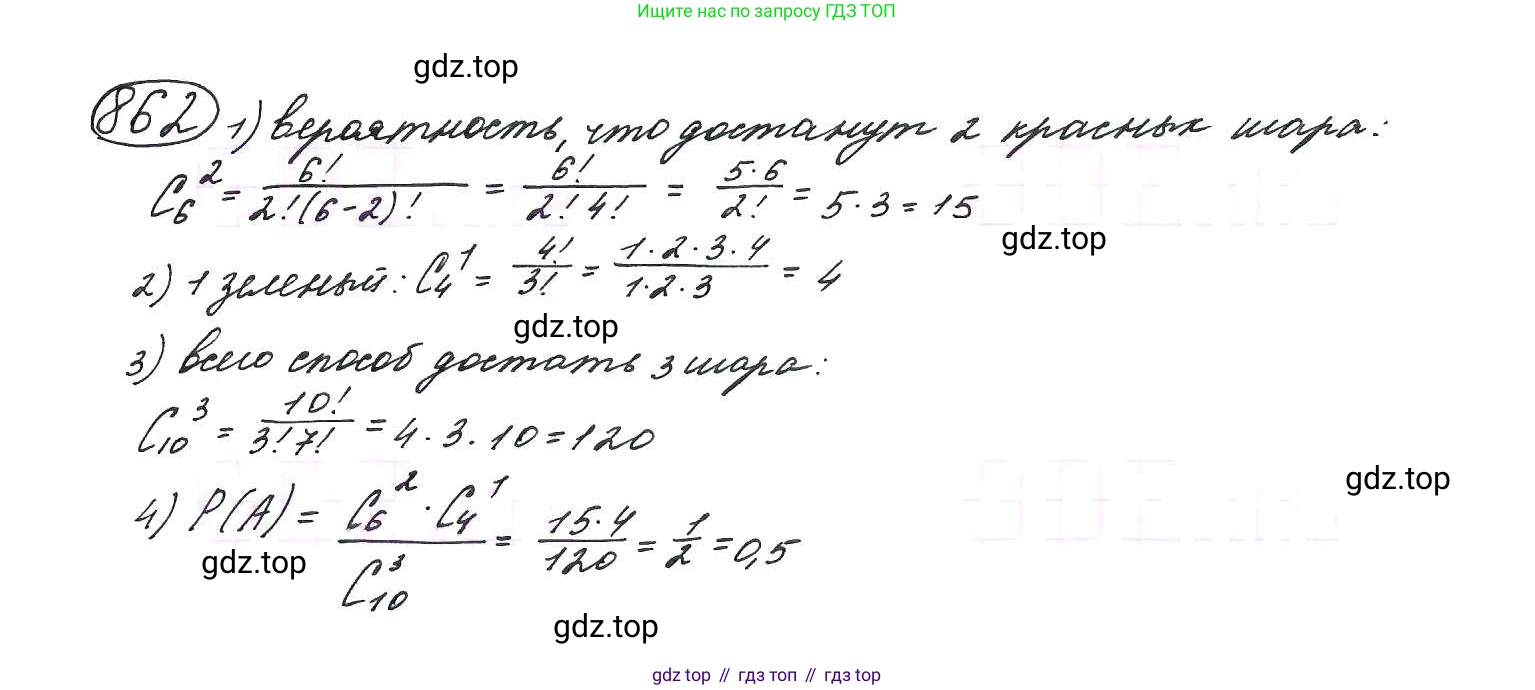 Ищите нас по запросу ГДЗ ТОП
gdz.top
862 1) вероятность, что достанут 2 красных шара:
C₆² = 6!/2!(6-2)! = 6!/2!4! = 5·6/2! = 5·3=15
gdz.top
2) 1 зеленый: C₄¹ = 4!/3! = 1·2·3·4/1·2·3 = 4
gdz.top
3) всего способ достать 3 шара:
C₁₀³ = 10!/3!7! = 4·3·10=120
gdz.top
4) P(A) = C₆²·C₄¹/C₁₀³ = 15·4/120 = 1/2 = 0,5
gdz.top
gdz.top
gdz top // гдз топ // гдз top